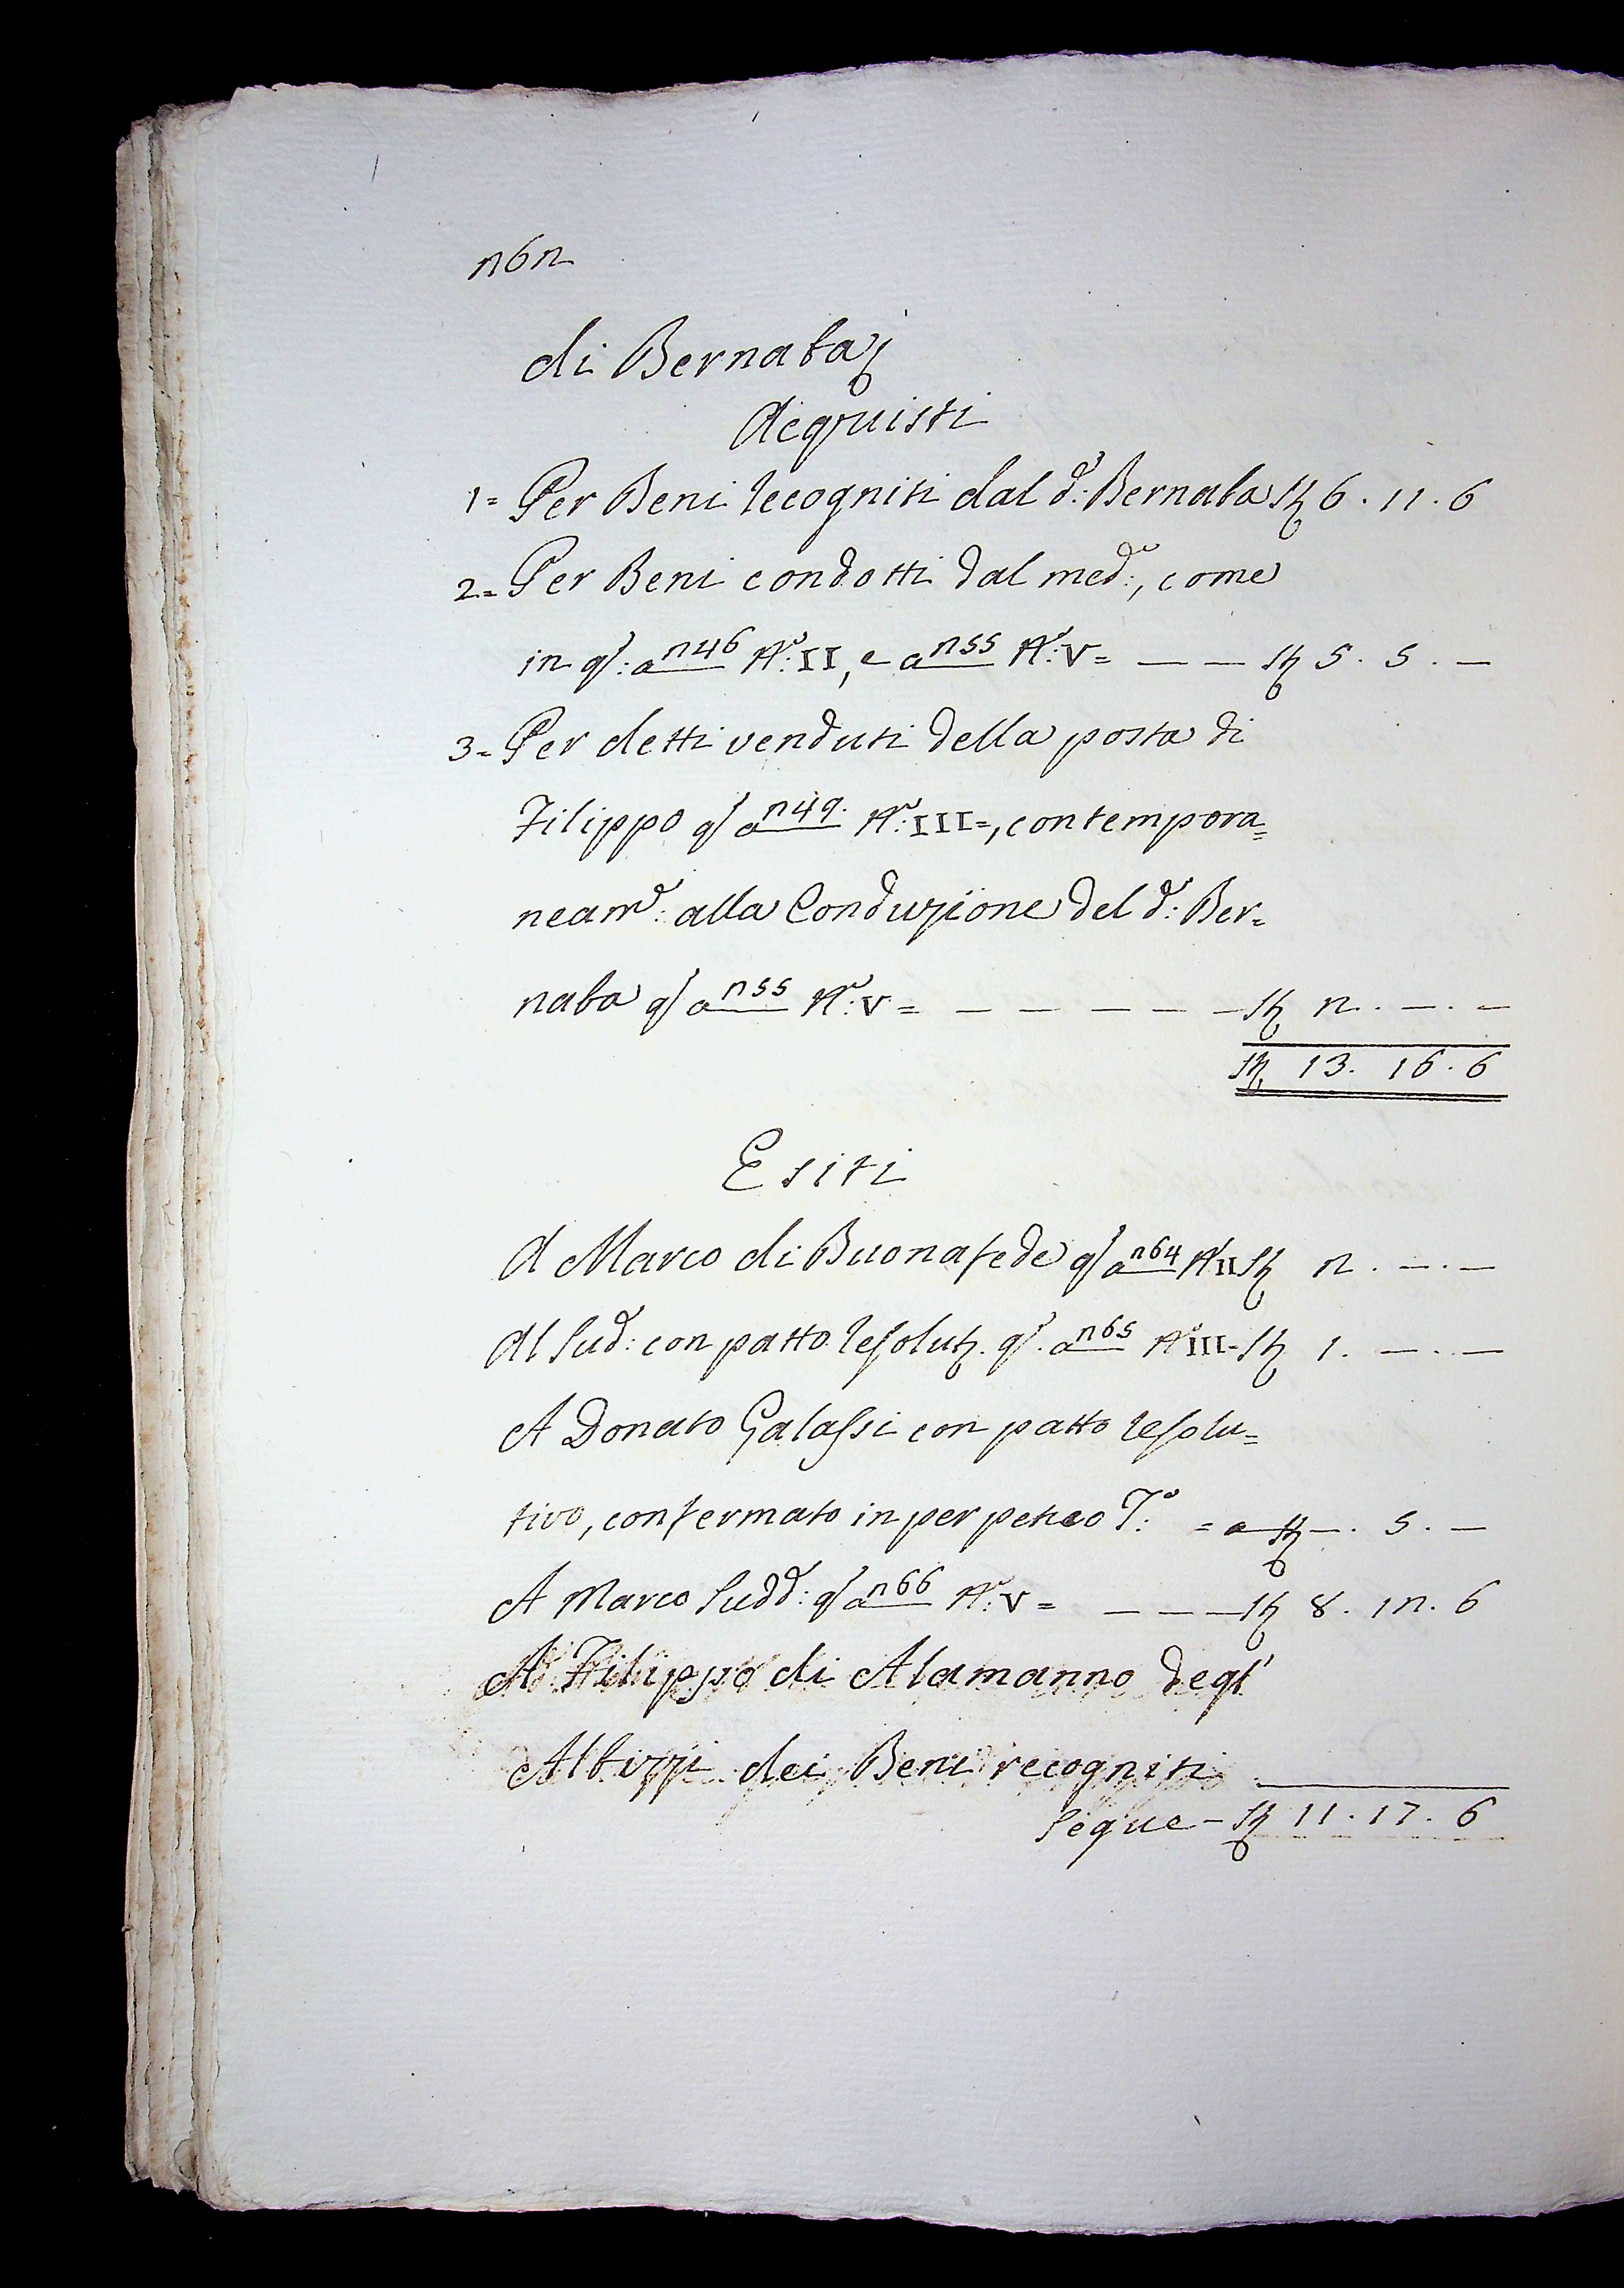 262
di Bernaba
Acquisti
1= Per Beni recogniti dal d.º: Bernaba St 6. 11. 6
2= Per Beni condotti dal med.º:, come
in q.º: a 246 N.º: II, e a 255 N.º: V= — — St 5. 5. —
3= Per detti venduti della posta di
Filippo q.º a 249. N.º: III=, contempora=
neam.e: alla Conduzione del d.º: Ber=
naba q.º a 255 N.º: V= — — — — — St 2. —. —
St 13. 16. 6
Esiti
A Marco di Buonafede q.º a 264 N.º II St 2. —. —
Al Sud.º: con patto resolut. q.º. a 265 N.º III- St 1. —. —
A Donato Galassi con patto resolu=
tivo, confermato in perpetuo T.º: = — St —. 5. —
A Marco Sudd.º: q.º a 266 N.º: V= — — — St 8. 12. 6
A Filippo di Alamanno degl'
Albizzi dei Beni recogniti
Segue — St 11. 17. 6